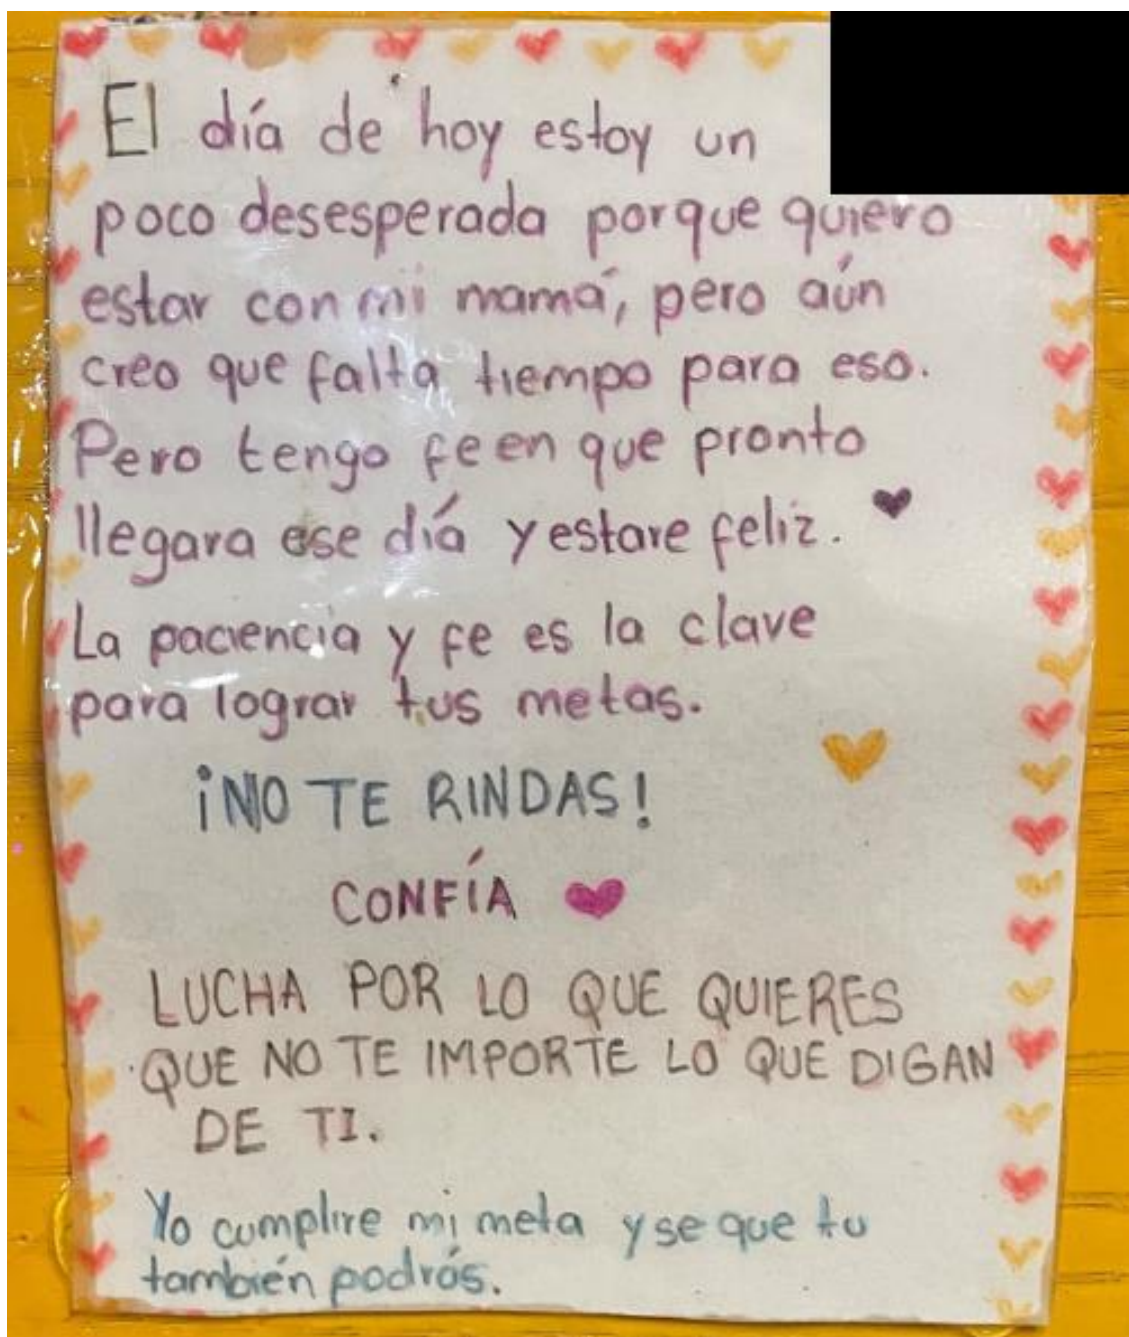 El día de hoy estoy un
poco desesperada porque quiero
estar con mi mamá, pero aún
creo que falta tiempo para eso.
Pero tengo fe en que pronto
llegara ese día y estare feliz.
La paciencia y fe es la clave
para lograr tus metas.
¡NO TE RINDAS!
CONFÍA
LUCHA POR LO QUE QUIERES
QUE NO TE IMPORTE LO QUE DIGAN
DE TI.
Yo cumplire mi meta y se que tu
también podrás.